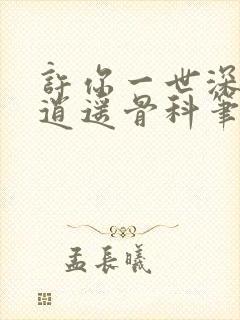 許你一世深
逍遥骨科筆
孟長曦